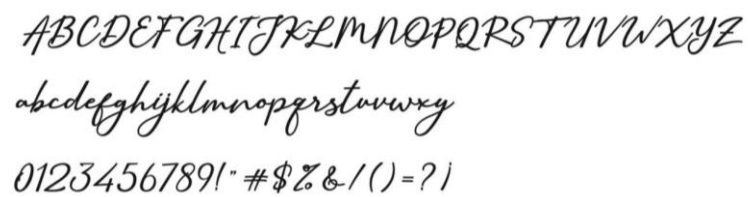 ABCDEFGHIJKLMNOPQRSTUVWXYZ
abcdefghijklmnopqrstuvwxy
0123456789!"#$%&/()=?¡